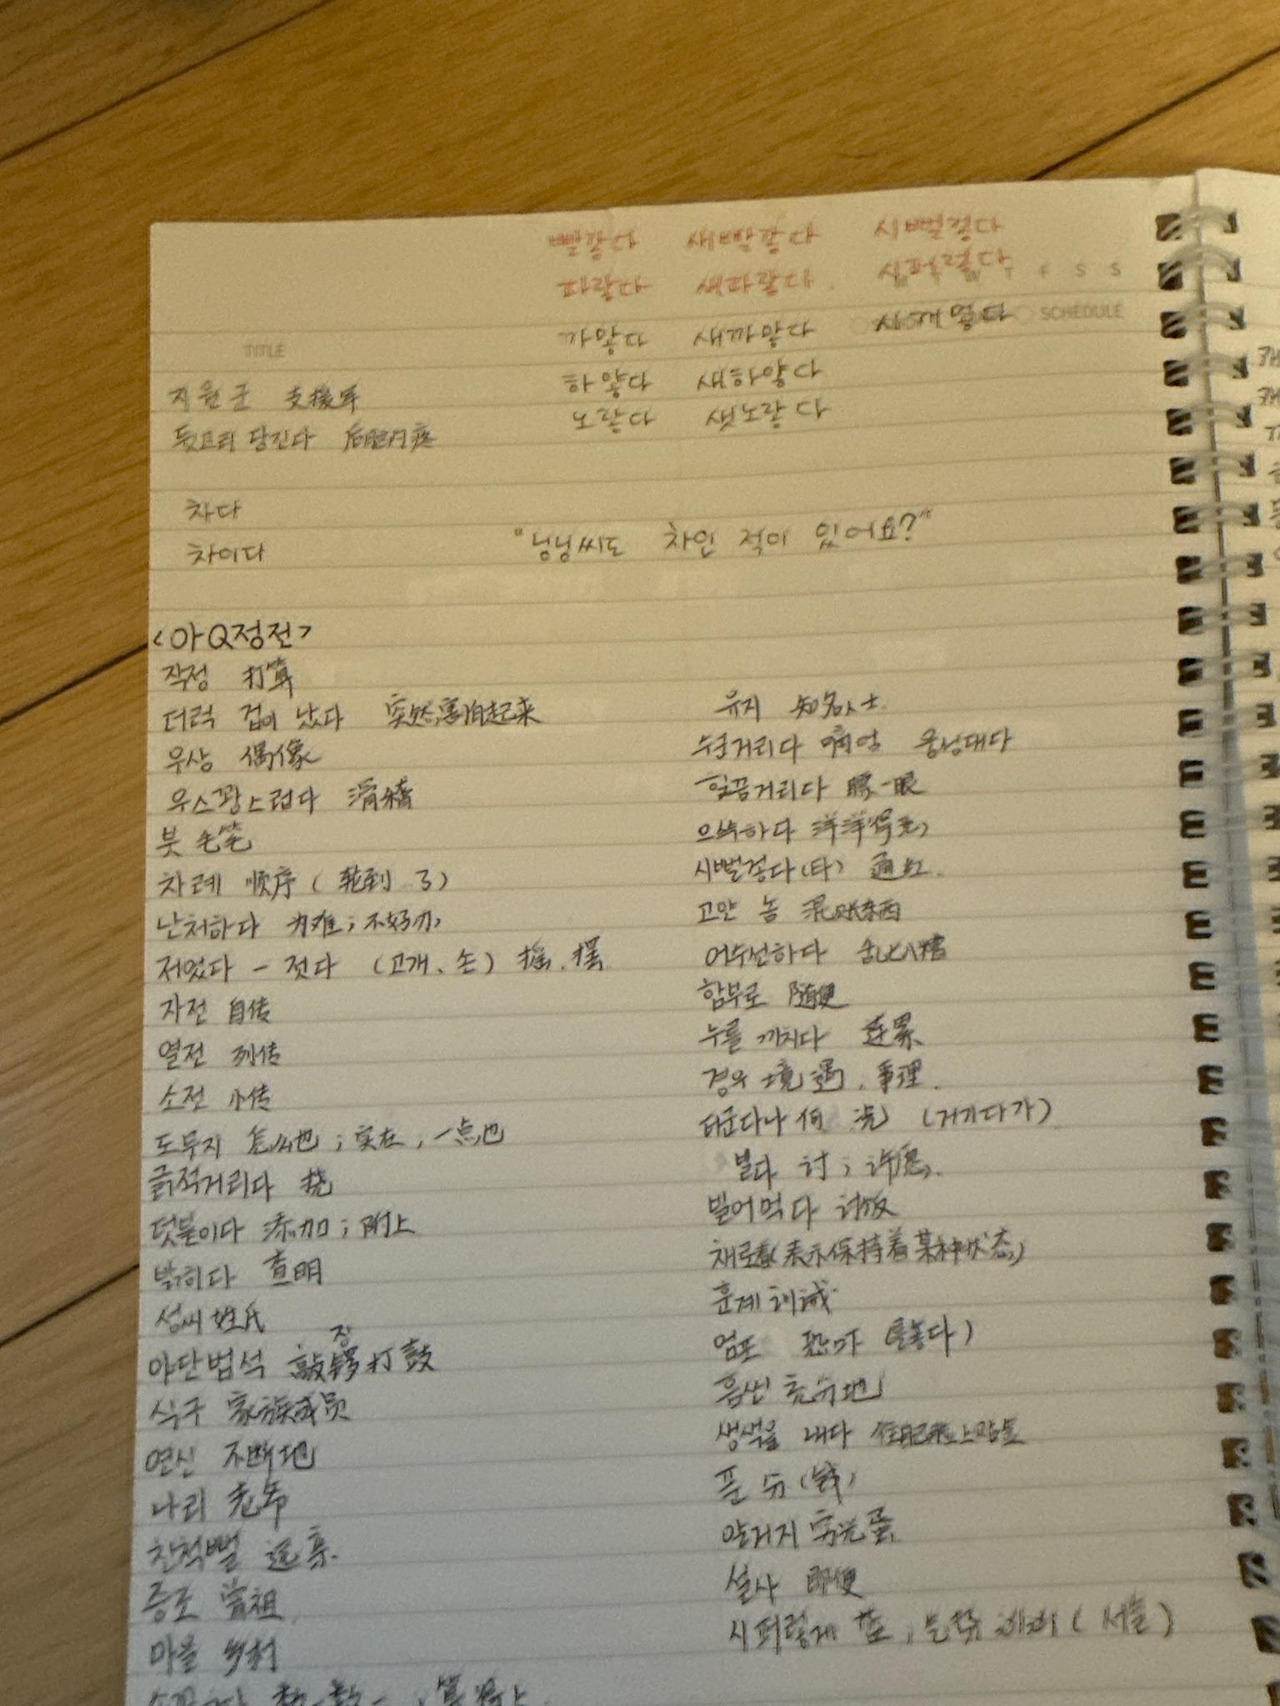 빨갛다 새빨갛다 시뻘겋다
파랗다 새파랗다 시퍼렇다
T F S S
까맣다 새까맣다 시꺼멓다
SCHEDULE
TITLE
하얗다 새하얗다
지원군 支援军
노랗다 샛노랗다
당긴다
차다
차이다
"닝닝씨도 차인 적이 있어요?"
<아Q정전>
작정 打算
더럭 겁이 났다 突然害怕起来
우상 偶像
우스꽝스럽다 滑稽
붓 毛笔
차례 顺序 (轮到了)
난처하다 为难; 不好办
저었다 - 젓다 (고개、손) 摇、摆
자전 自传
열전 列传
소전 小传
도무지 怎么也; 实在; 一点也
긁적거리다 挠
덧붙이다 添加; 附上
밝히다 查明
성씨 姓氏
장
야단법석 敲锣打鼓
식구 家族成员
연신 不断地
나리 老爷
친척뻘 远亲.
증조 曾祖
마을 乡村
유지 知名人士
수군거리다 웅성대다
힐끔거리다 瞟一眼
으쓱하다 洋洋得意
시뻘겋다(타) 通红.
고얀 놈 混账东西
어수선하다 乱七八糟
함부로 随便
누를 끼치다 连累
경우 境遇、事理.
더군다나 何况 (거기다가)
빌다 讨; 许愿.
빌어먹다 讨饭
채로 (表示保持着某种状态)
훈계 训诫
엄포 恐吓 (놓다)
흠씬 充分地
생색을 내다 往自己脸上贴金
푼 分 (钱)
알거지 穷光蛋
설사 即使
시퍼렇게 (서슬)